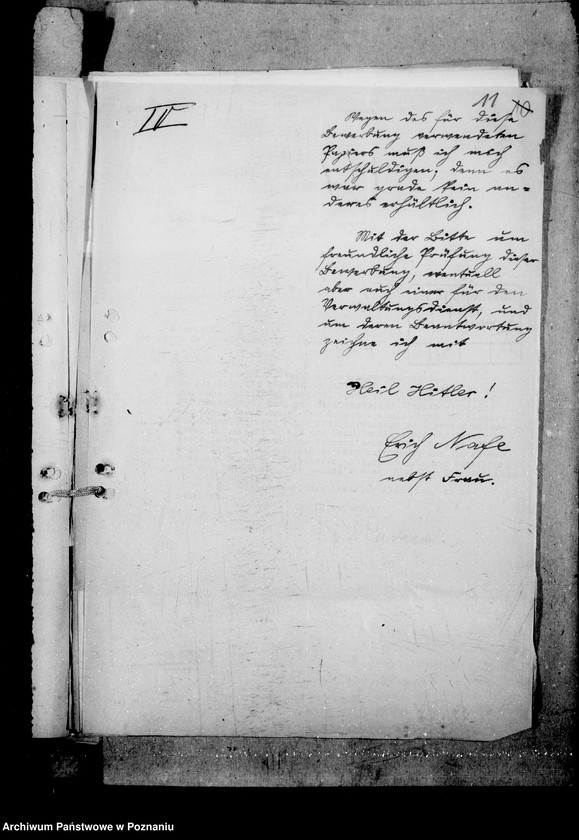 IV
11
10
Wegen des für diese
Bewerbung verwendeten
Papiers muß ich mich
entschuldigen; denn es
war grade kein an=
deres erhältlich.
Mit der Bitte um
freundliche Prüfung dieser
Bewerbung, eventuell
aber auch einer für den
Verwaltungsdienst, und
um deren Beantwortung
zeichne ich mit
Heil Hitler!
Erich Nafe
nebst Frau.
Archiwum Państwowe w Poznaniu